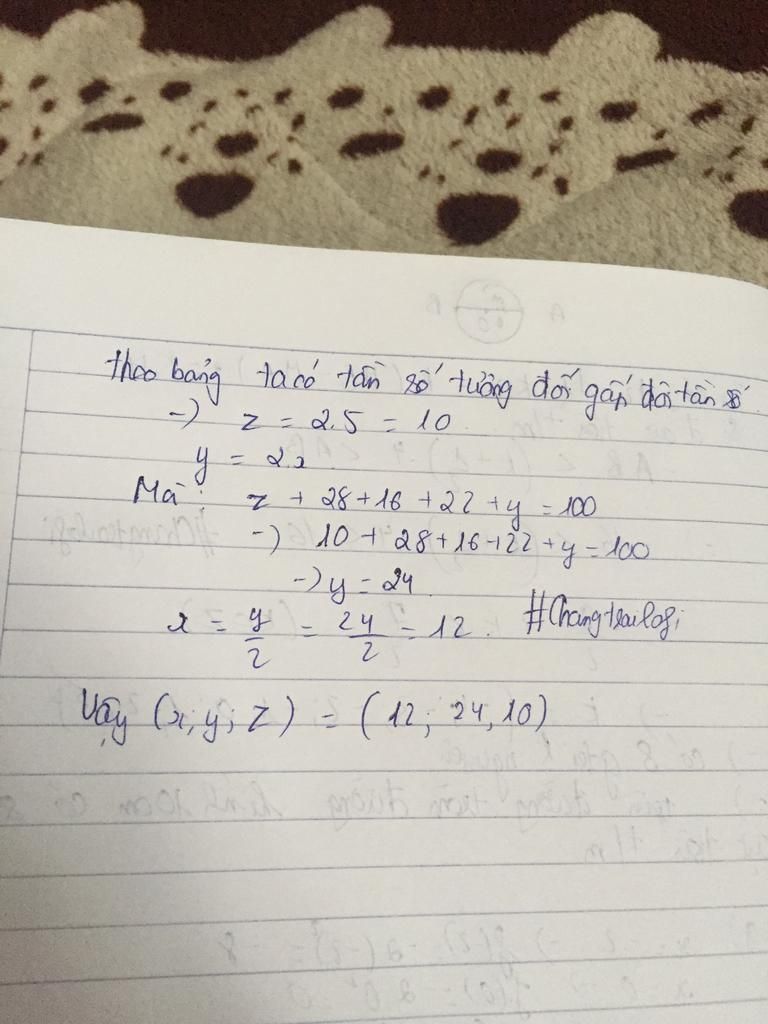 theo bảng ta có tần số tương đối gấp đôi tần số
-) z = 2.5 = 10
y = 2.x
Mà : z + 28 + 16 + 22 + y = 100
-) 10 + 28 + 16 + 22 + y = 100
-) y = 24
x = y/2 = 24/2 = 12. #Changtrailofi
Vậy (x; y; z) = (12; 24, 10)